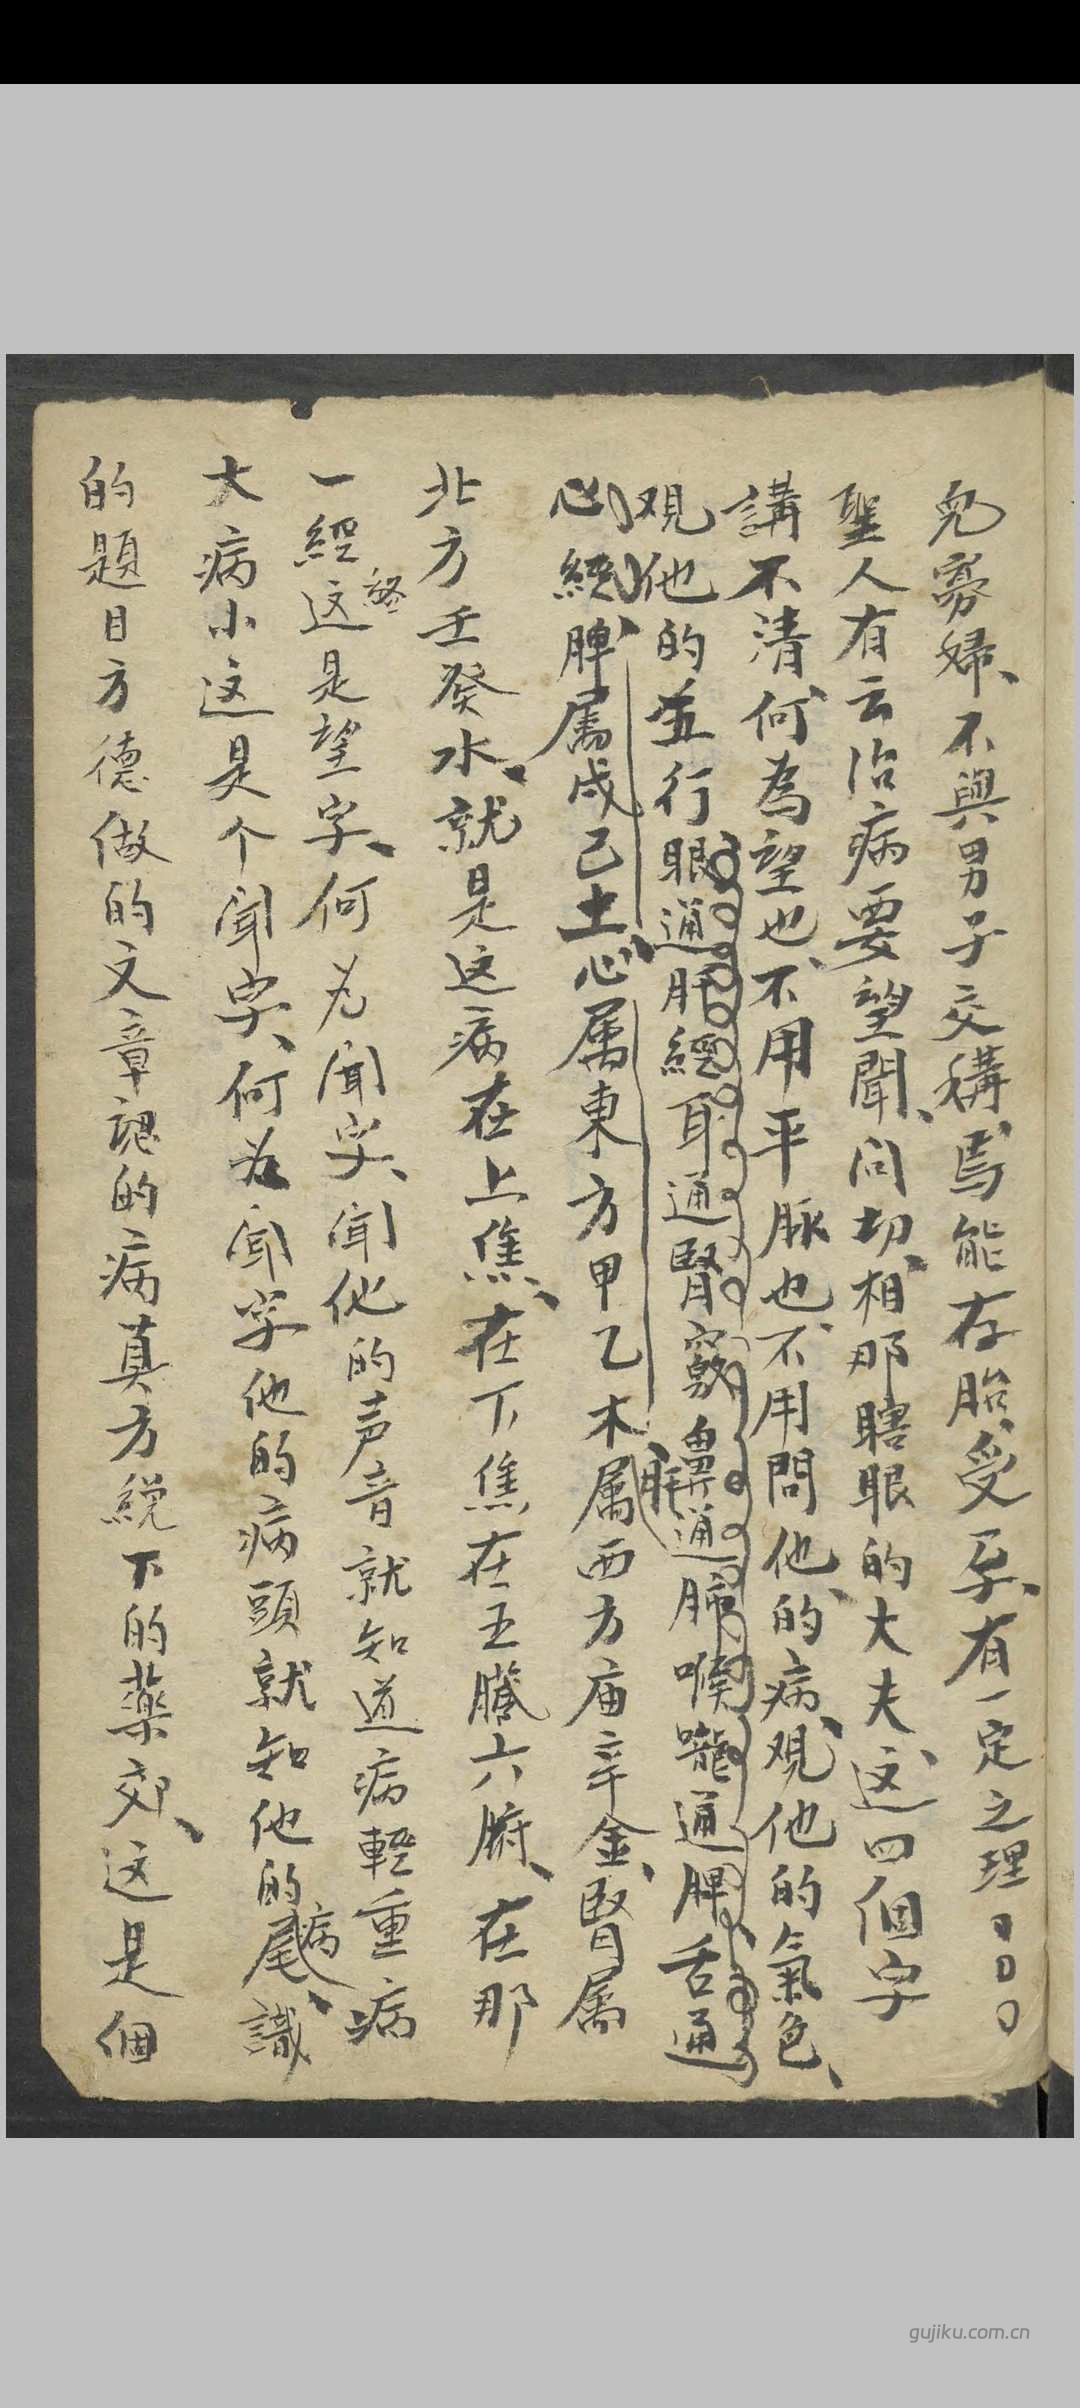 兒寡婦、不與男子交構、焉能存胎、受孕、有一定之理
聖人有云治病要望聞、问切、相那瞎眼的大夫、这四個字
講不清、何為望也、不用平脈也、不用問他、的病、观他的氣色、
观他的五行眼通肝經耳通腎竅鼻通肺喉嚨通脾舌通
心經、脾属戊己土、心属東方甲乙木、肝属西方庙辛金、腎属
北方壬癸水、就是这病在上焦、在下焦在五臓六腑、在那
一經这是望字、何为闻字、闻他的声音就知道病輕重病
大病小这是个闻字、何为闻字他的病頭就知他的病尾、識
的題目方德做的文章認的病真方 下的藥 、这是個
gujiku.com.cn